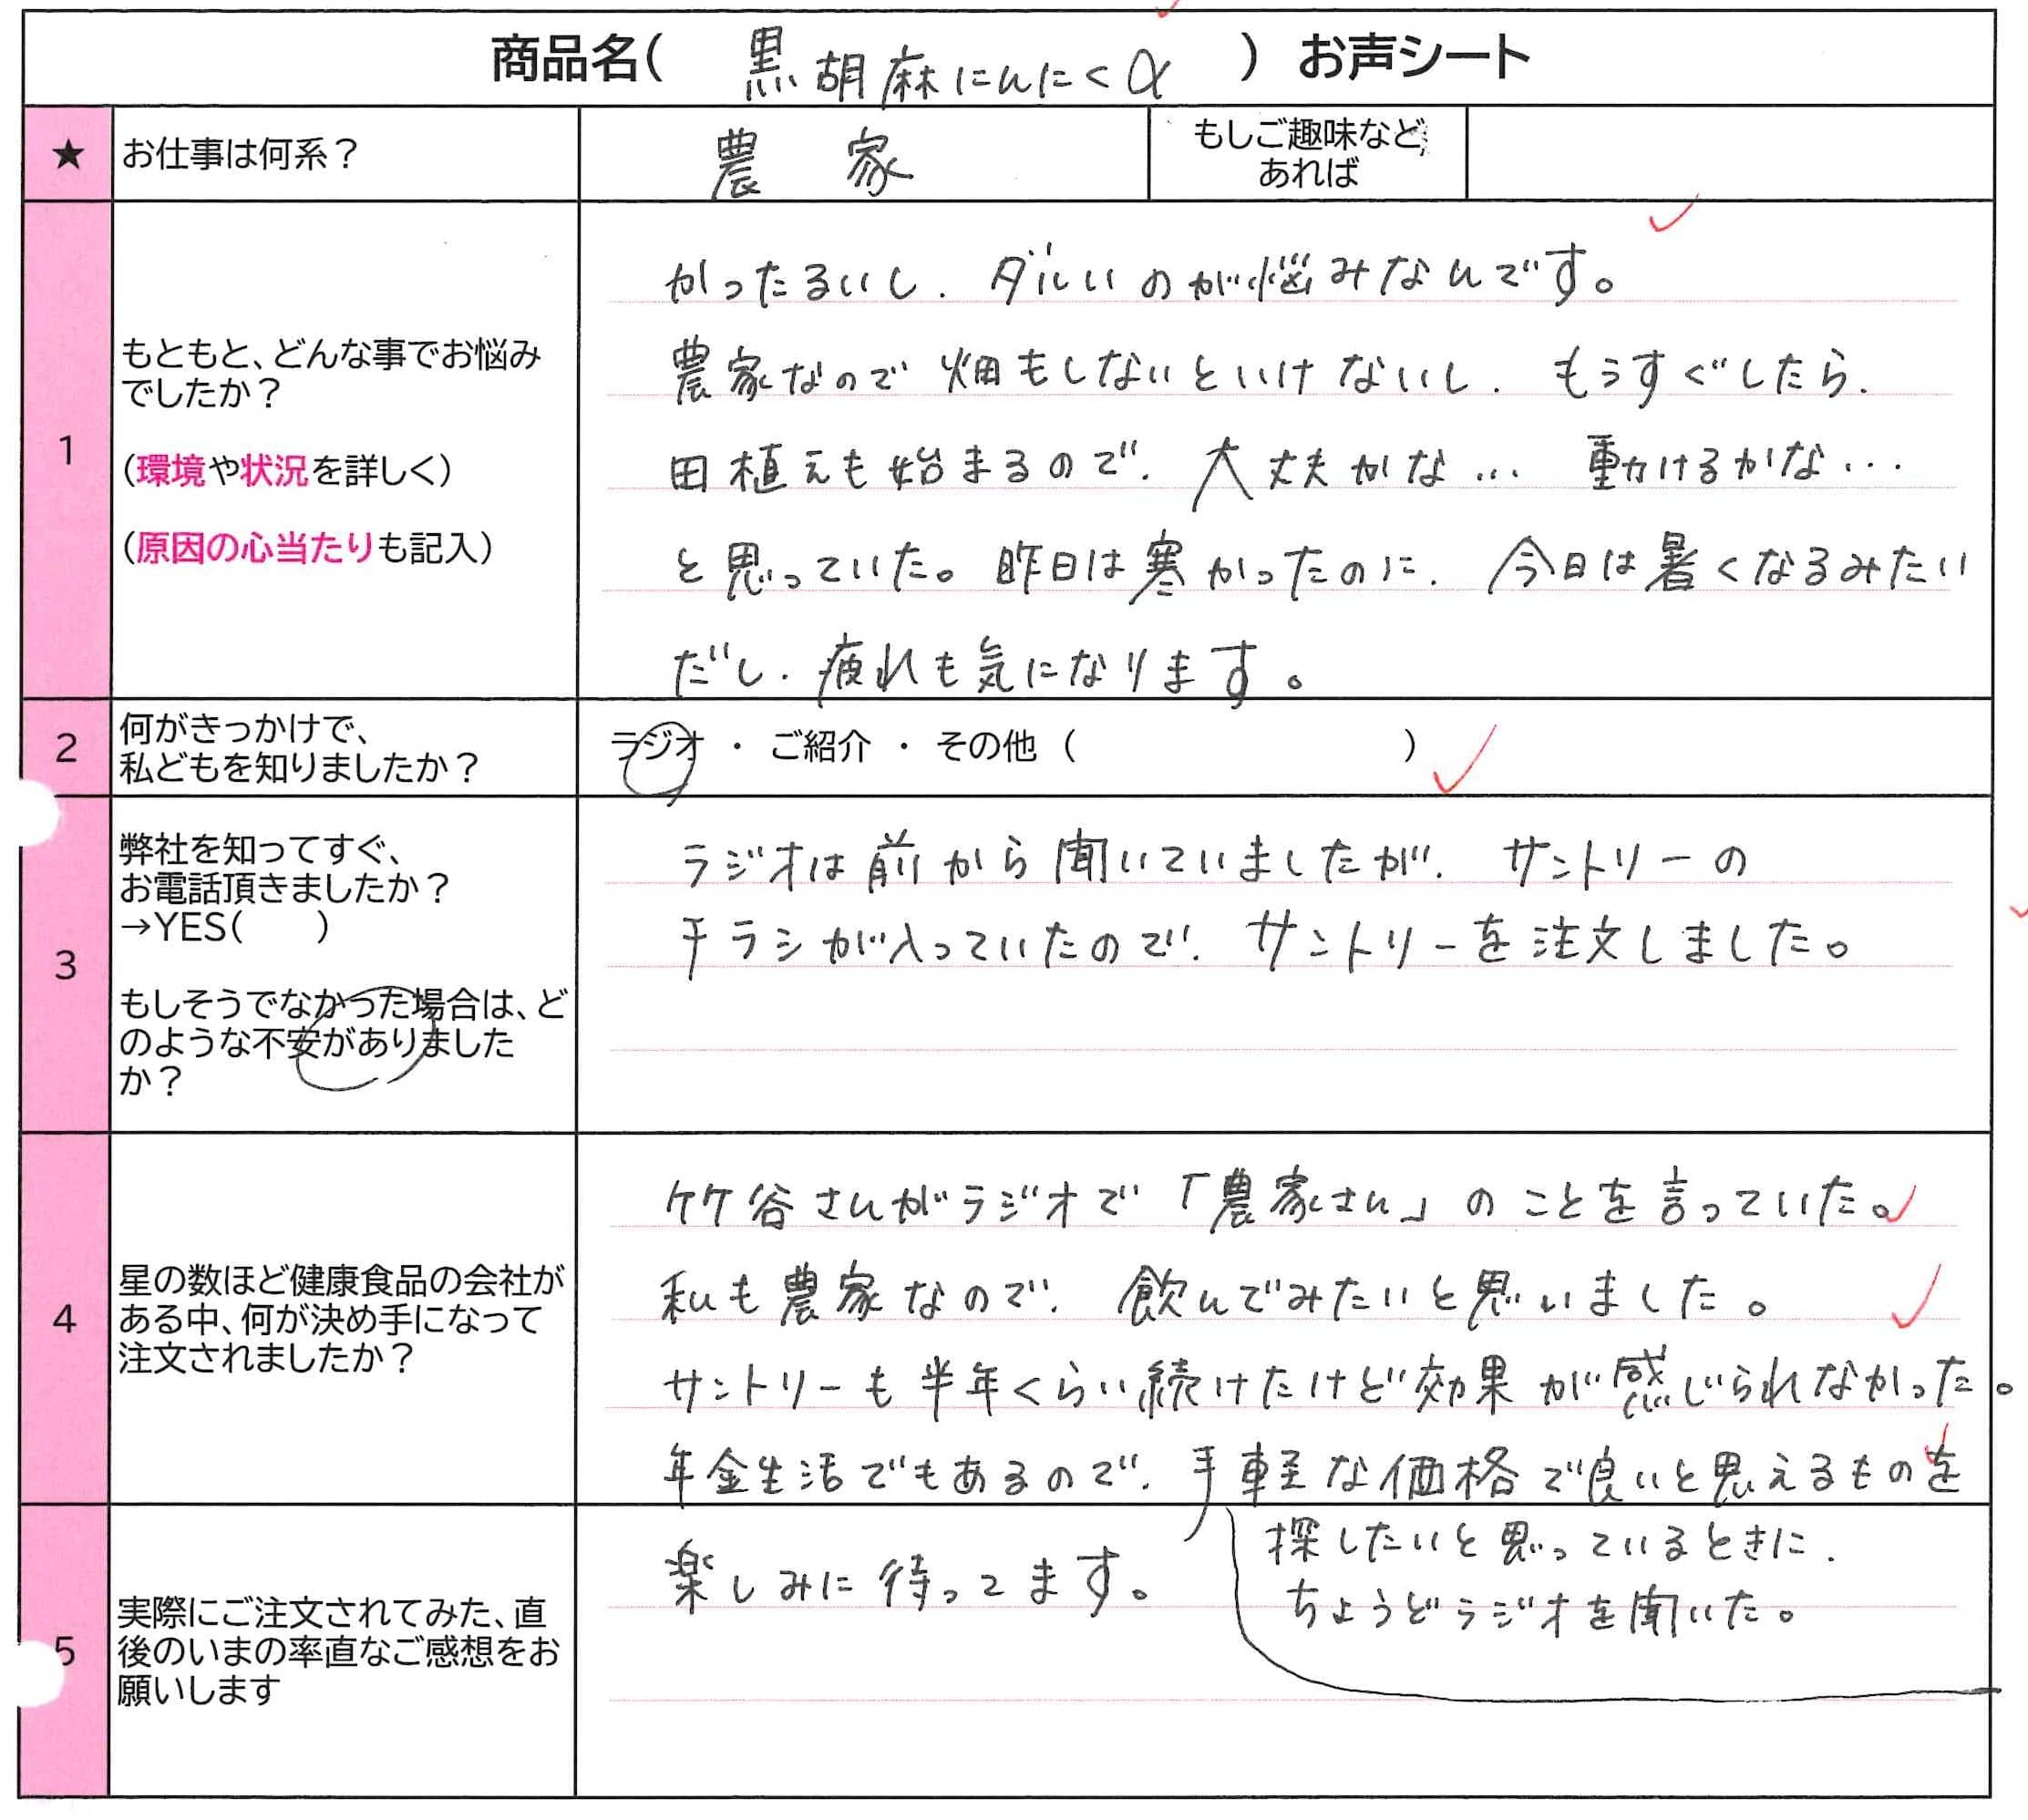 商品名( 黒胡麻にんにくα ) お声シート
★ お仕事は何系？ 農家 もしご趣味など
あれば
1
もともと、どんな事でお悩み
でしたか？
(環境や状況を詳しく)
(原因の心当たりも記入)
かったるいし、ダルいのが悩みなんです。
農家なので畑もしないといけないし、もうすぐしたら、
田植えも始まるので、大丈夫かな… 動けるかな…
と思っていた。昨日は寒かったのに、今日は暑くなるみたい
だし、疲れも気になります。
2
何がきっかけで、
私どもを知りましたか？
ラジオ ・ ご紹介 ・ その他 ( )
3
弊社を知ってすぐ、
お電話頂きましたか？
→YES( )
もしそうでなかった場合は、ど
のような不安がありました
か？
ラジオは前から聞いていましたが、サントリーの
チラシが入っていたので、サントリーを注文しました。
4
星の数ほど健康食品の会社が
ある中、何が決め手になって
注文されましたか？
竹谷さんがラジオで「農家さん」のことを言っていた。
私も農家なので、飲んでみたいと思いました。
サントリーも半年くらい続けたけど効果が感じられなかった。
年金生活でもあるので、手軽な価格で良いと思えるものを
探したいと思っているときに、
ちょうどラジオを聞いた。
5
実際にご注文されてみた、直
後のいまの率直なご感想をお
願いします
楽しみに待ってます。